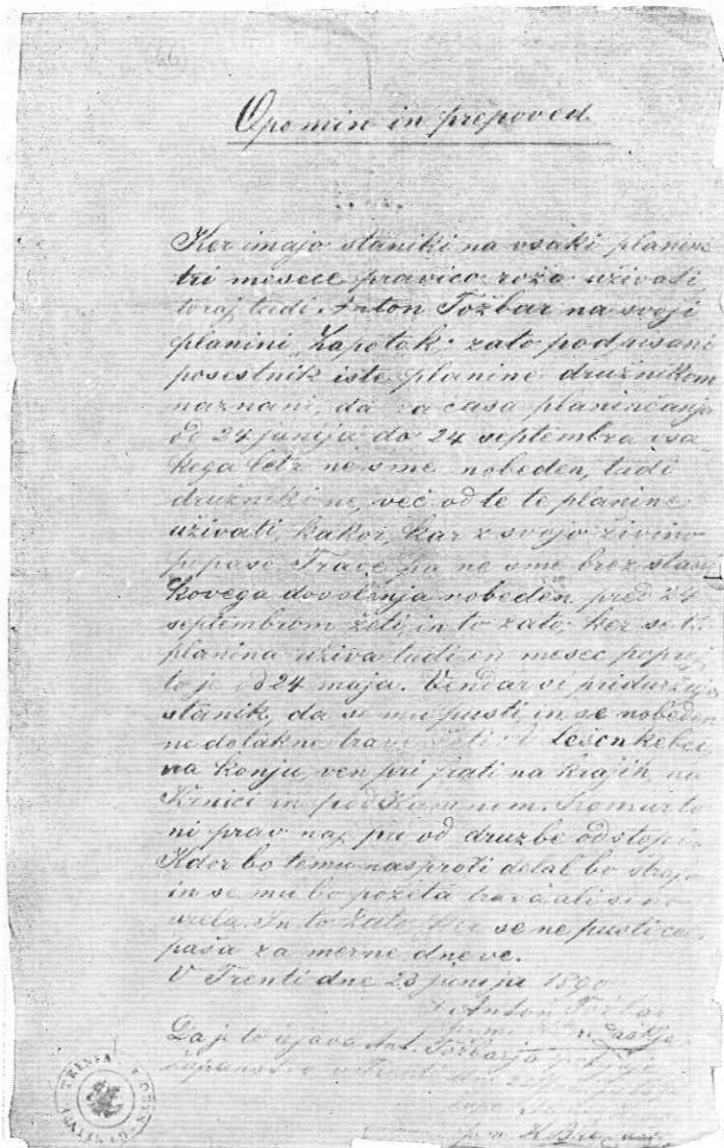 (66)
Opomin in prepoved.
Ker imajo staniki na vsaki planini
tri mesece pravico roža uživati,
toraj tudi Anton Tožbar na svoji
planini „Zapotok“ zato podpisani
posestnik iste planine družnikom
naznani, da za časa planinčanja
od 24 junija do 24 septembra vsa-
kega leta ne sme nobeden, tudi
družniki ne, več od te te planine
uživati, kakor, kar z svojo živino
popase. Trave pa ne sme brez stani-
kovega dovoljenja nobeden pred 24
septembrom žeti, in to zato, ker se ta
planina uživa tudi en mesec poprej
to je od 24 maja. Vendar si pridržuje
stanik, da se mu pusti, in se nobeden
ne dotakne trave žeti
na Konju, ven pri frati na krajih na
Krnici in pod Kamnom. Komur to
ni prav naj pa od družbe odstopi.
Kdor bo temu nasproti delal bo
in se mu bo požeta trava ali seno
vzela. In to zato, ker se ne pusti
paša za merne dneve.
V Trenti dne 23 junija 1890
+ Anton Tožbar
Da je to izjava Ant. Tožbarja
županstvo v Trenti
TRENTA